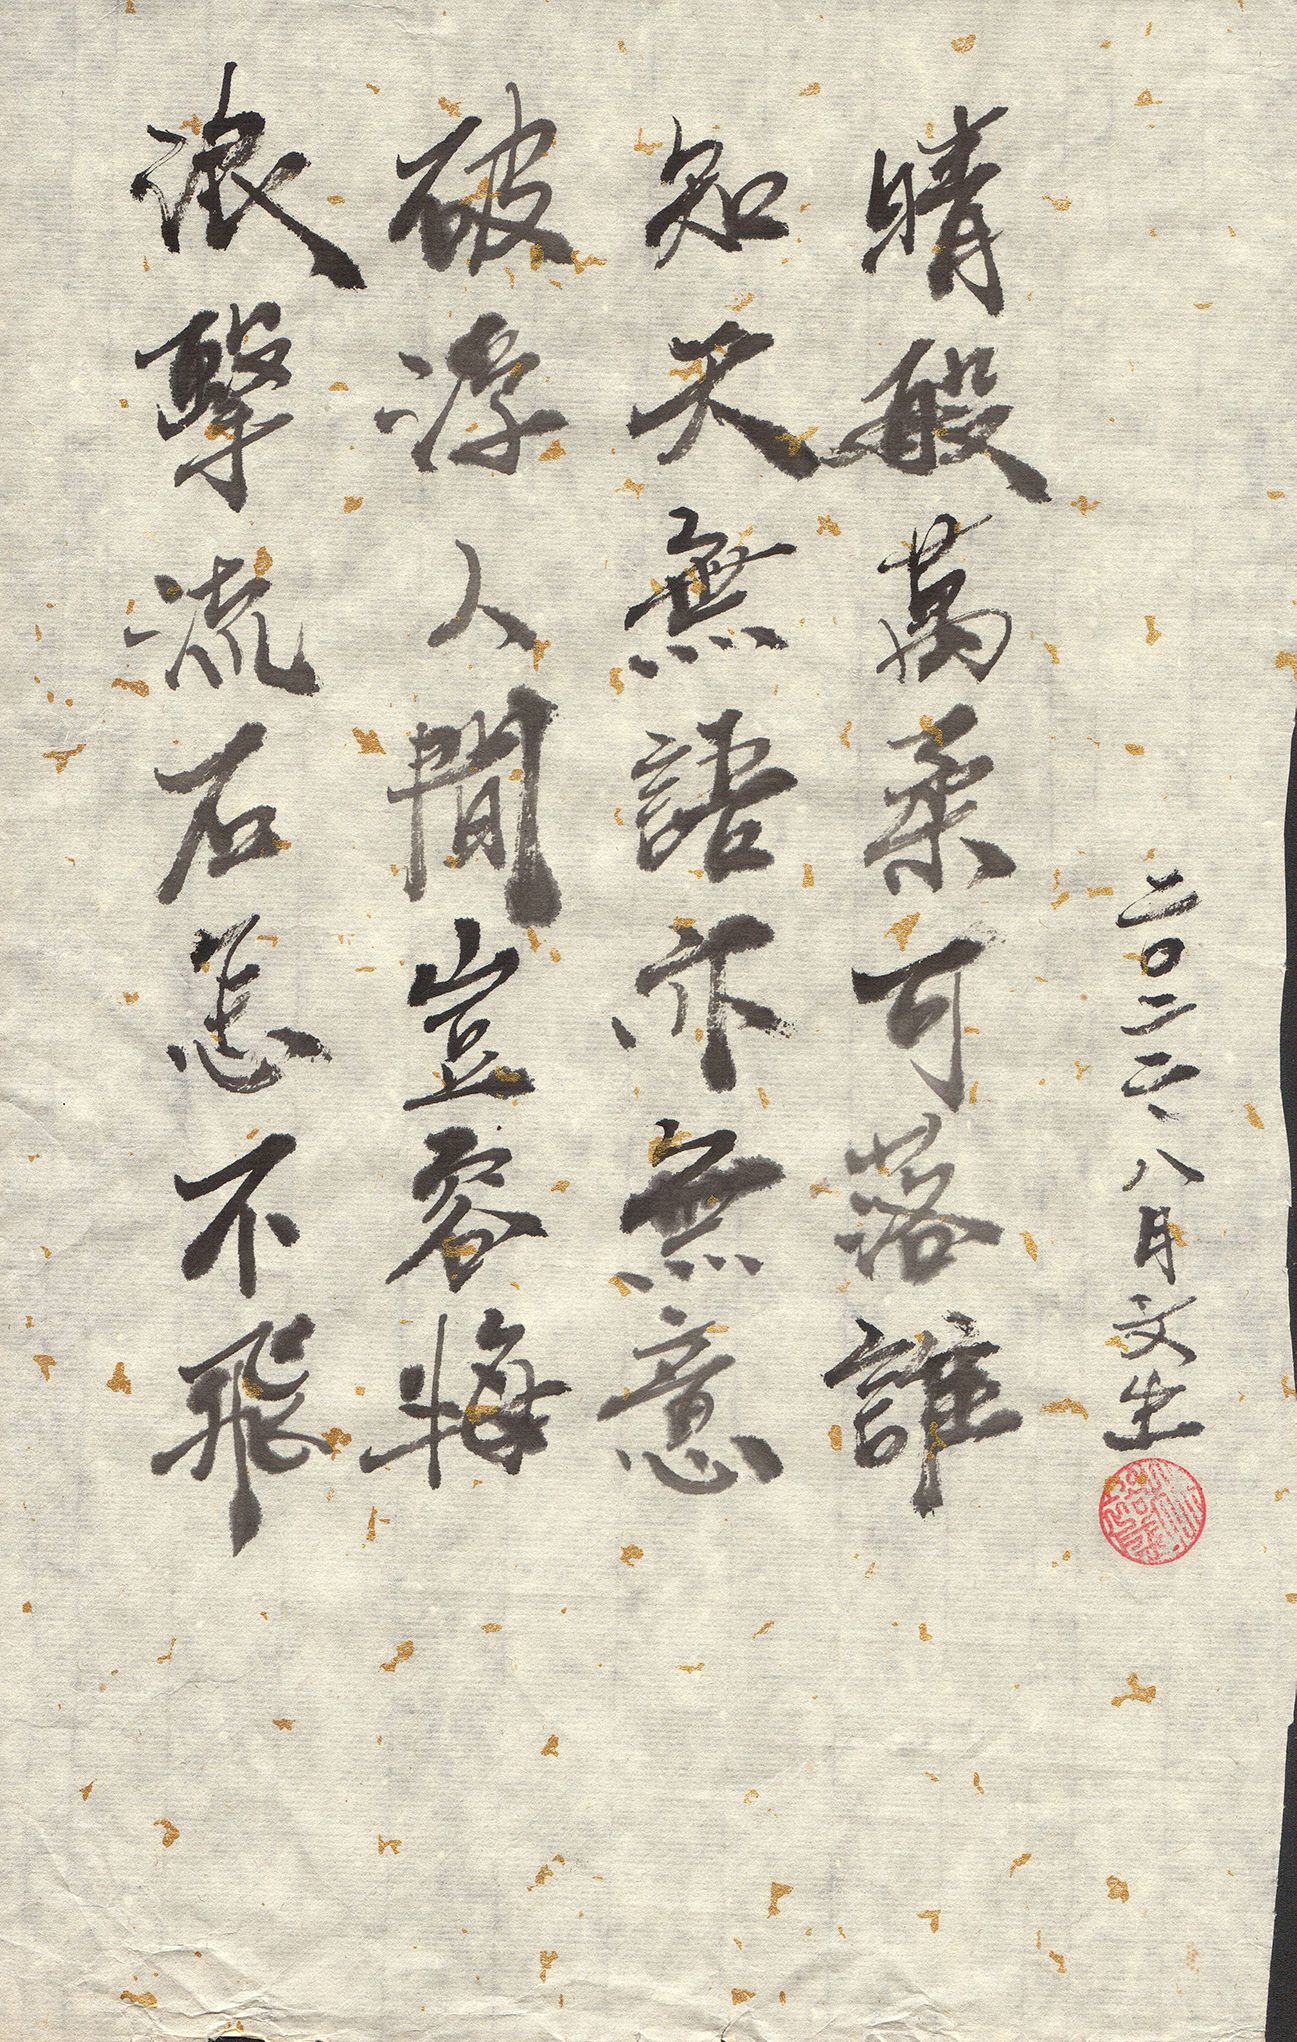 浪擊流石怎不飛
破浮人間豈容悔
知天無語亦無意
晴般萬柔可落誰
二〇二二、八月文生